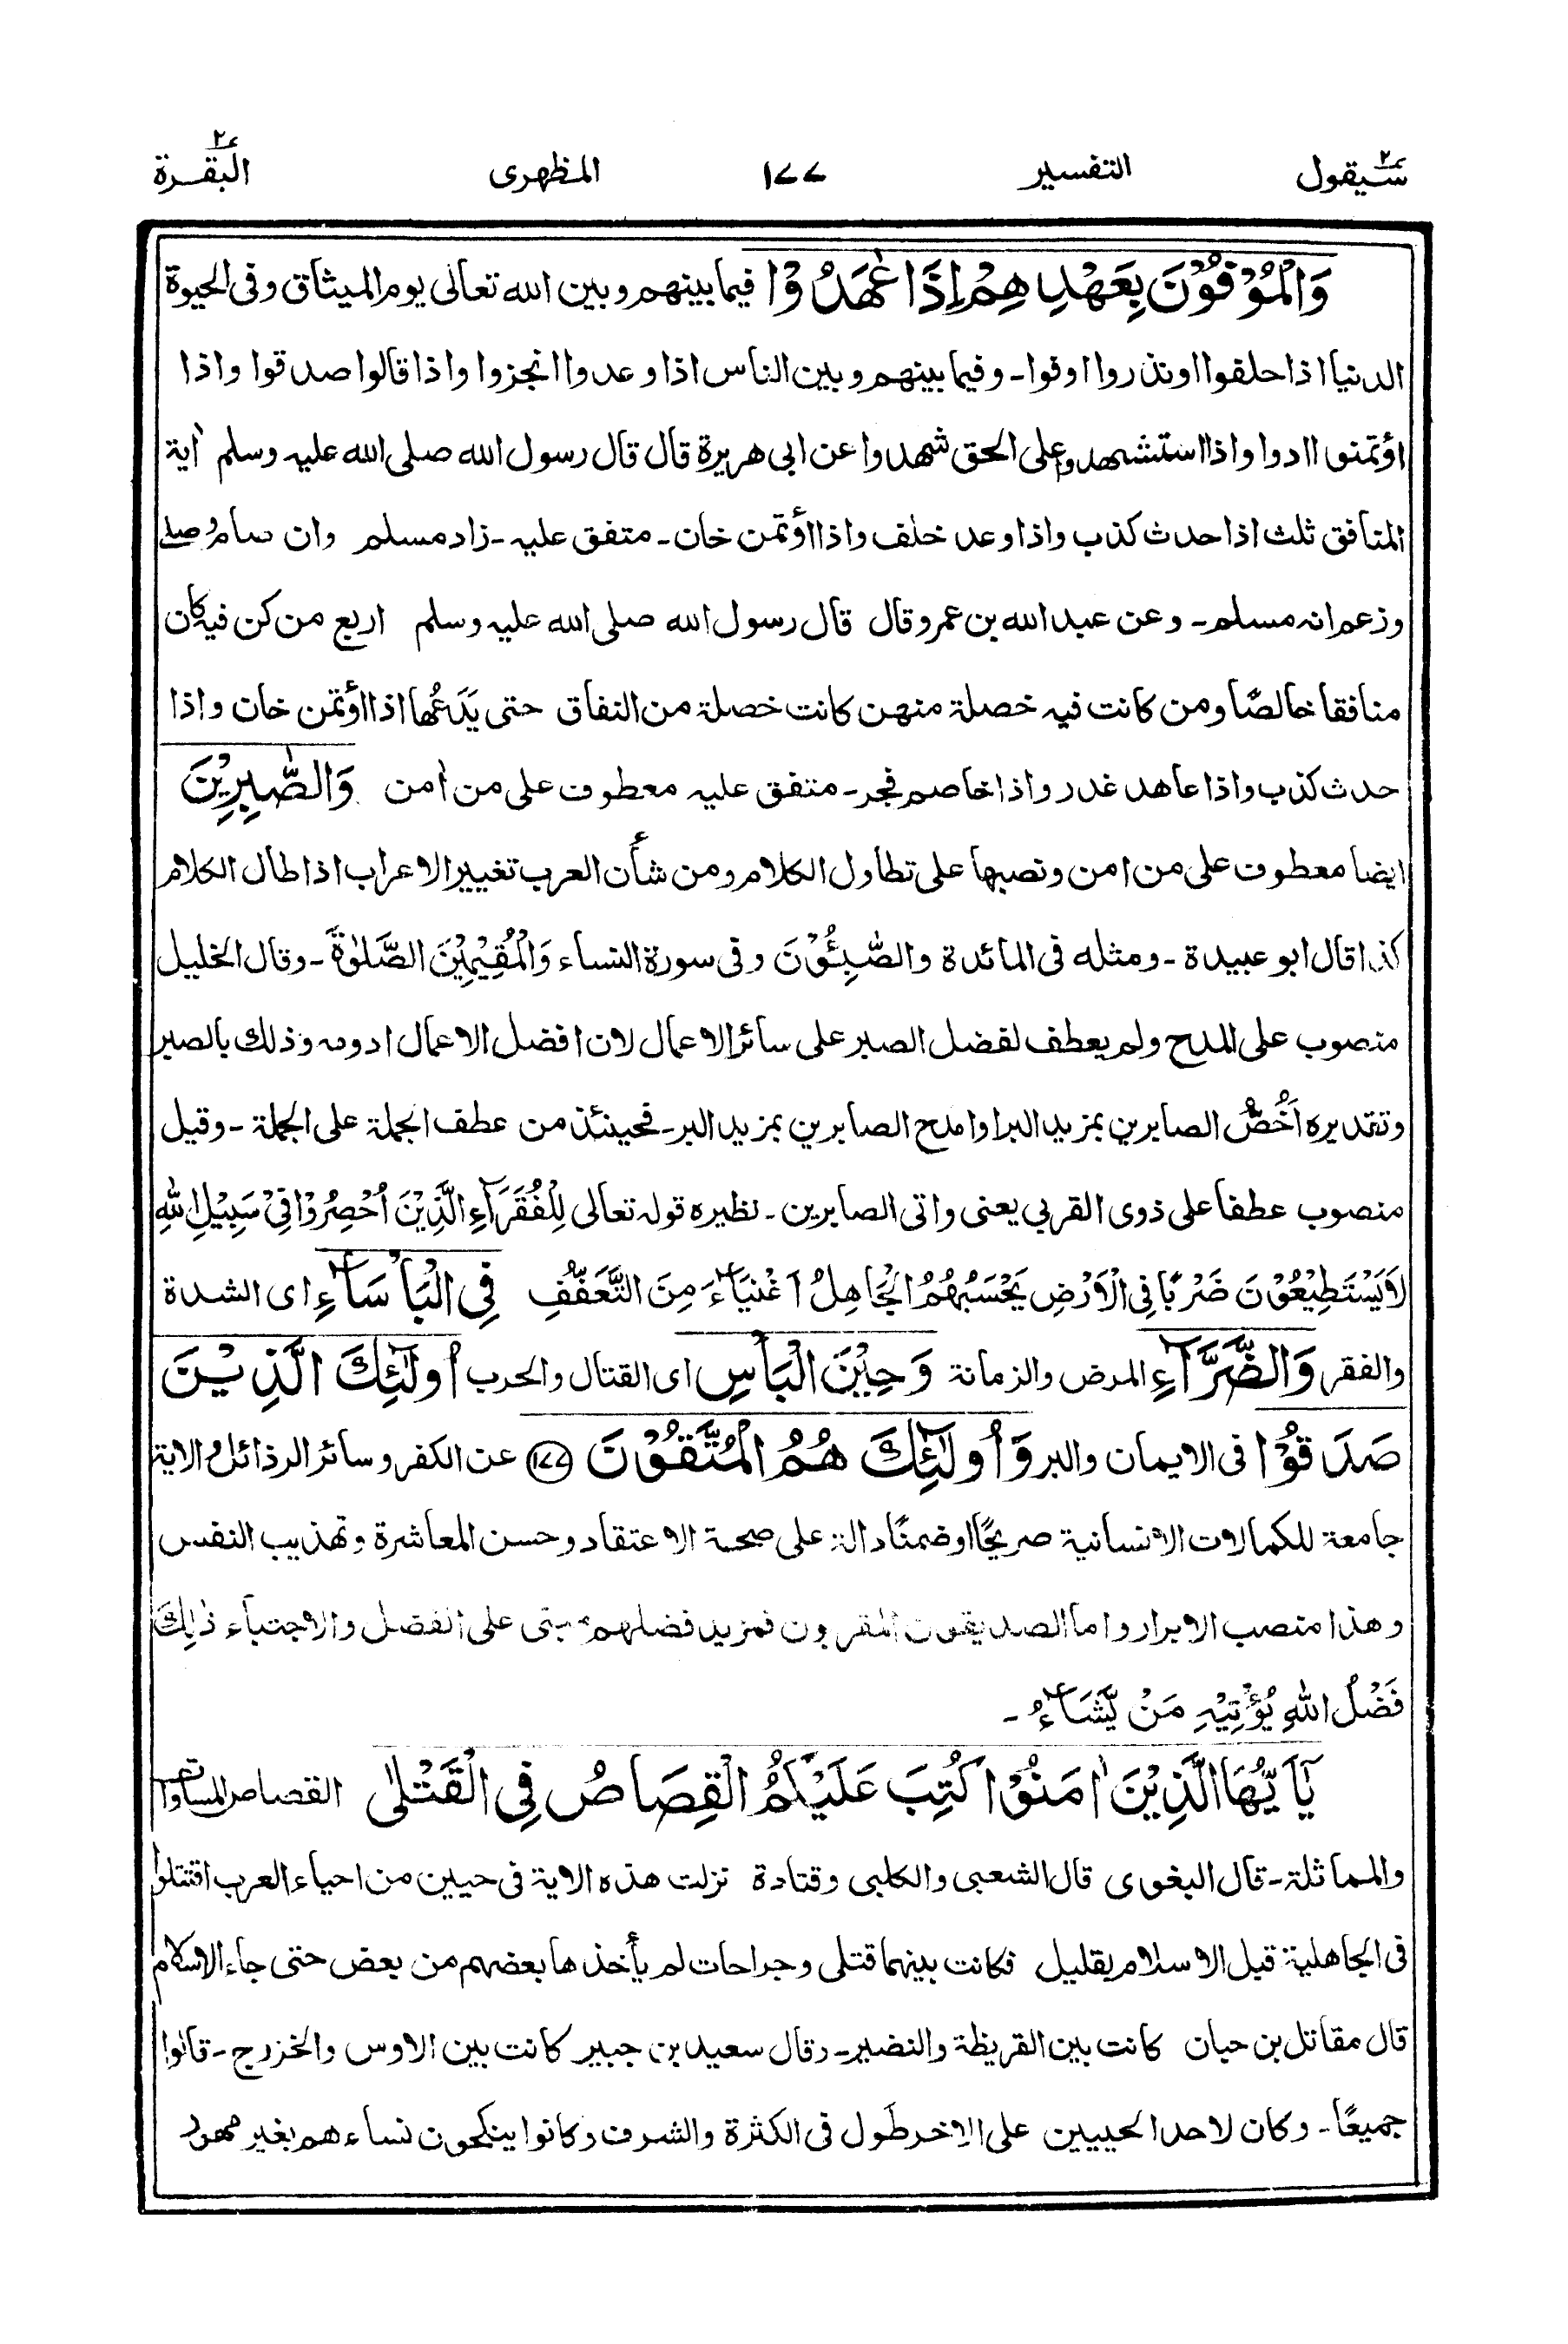 سيقول ٢ التفسير ١٧٧ المظهرى البقرة ٢
وَالْمُوْفُوْنَ بِعَهْدِهِمْ اِذَا عٰهَدُوْا فيما بينهم وبين الله تعالى يوم الميثاق وفى الحيوة
الدنيا اذا حلفوا او نذروا اوفوا۔ وفيما بينهم وبين الناس اذا وعدوا انجزوا واذا قالوا صدقوا واذا
اؤتمنوا ادوا واذا استشهدوا على الحق شهدوا عن ابى هريرة قال قال رسول الله صلى الله عليه وسلم اٰية
المنافق ثلث اذا حدث كذب واذا وعد خلف واذا اؤتمن خان۔ متفق عليه۔ زاد مسلم وان صام وصلے
وزعم انه مسلم۔ وعن عبد الله بن عمرو قال قال رسول الله صلى الله عليه وسلم اربع من كن فيه كان
منافقا خالصًا ومن كانت فيه خصلة منهن كانت خصلة من النفاق حتى يَدَعُها اذا اؤتمن خان واذا
حدث كذب واذا عاهد غدر واذا خاصم فجر۔ متفق عليه معطوف على من اٰمن وَالصّٰبِرِيْنَ
ايضا معطوف على من امن ونصبها على تطاول الكلام ومن شأن العرب تغيير الاعراب اذا طال الكلام
كذا قال ابو عبيدة۔ ومثله فى المائدة والصّٰبِئُوْنَ وفى سورة النساء وَالْمُقِيْمِيْنَ الصَّلٰوةَ۔ وقال الخليل
منصوب على المدح ولم يعطف لفضل الصبر على سائر الاعمال لان افضل الاعمال ادومه وذلك بالصبر
وتقديره اَخُصُّ الصابرين بمزيد البر او امدح الصابرين بمزيد البر۔ فحينئذ من عطف الجملة على الجملة۔ وقيل
منصوب عطفا على ذوى القربي يعنى واتى الصابرين۔ نظيره قوله تعالى لِلْفُقَرَآءِ الَّذِيْنَ اُحْصِرُوْا فِىْ سَبِيْلِ اللّٰهِ
لَا يَسْتَطِيْعُوْنَ ضَرْبًا فِى الْاَرْضِ يَحْسَبُهُمُ الْجَاهِلُ اَغْنِيَآءَ مِنَ التَّعَفُّفِ فِى الْبَأْسَآءِ اى الشدة
والفقر وَالضَّرَّآءِ المرض والزمانة وَحِيْنَ الْبَأْسِ اى القتال والحرب اُولٰٓئِكَ الَّذِيْنَ
صَدَقُوْا فى الايمان والبر وَاُولٰٓئِكَ هُمُ الْمُتَّقُوْنَ ۝١٧٧ عن الكفر وسائر الرذائل والاية
جامعة للكمالات الانسانية صريحًا او ضمنًا دالة على صحة الاعتقاد وحسن المعاشرة وتهذيب النفس
وهذا منصب الابرار واما الصديقون المقربون فمزيد فضلهم مبنى على الفضل والاجتباء ذٰلِكَ
فَضْلُ اللّٰهِ يُؤْتِيْهِ مَنْ يَّشَآءُ۔
يٰٓاَيُّهَا الَّذِيْنَ اٰمَنُوْا كُتِبَ عَلَيْكُمُ الْقِصَاصُ فِى الْقَتْلٰى القصاص المساواة
والمماثلة۔ قال البغوى قال الشعبى والكلبى وقتادة نزلت هذه الاية فى حيين من احياء العرب اقتتلوا
فى الجاهلية قبل الاسلام بقليل فكانت بينهما قتلى وجراحات لم يأخذها بعضهم من بعض حتى جاء الاسلام
قال مقاتل بن حبان كانت بين القريظة والنضير۔ وقال سعيد بن جبير كانت بين الاوس والخزرج۔ قالوا
جميعًا۔ وكان لاحد الحييين على الاخر طَول فى الكثرة والشرف وكانوا ينكحون نساءهم بغير مهور